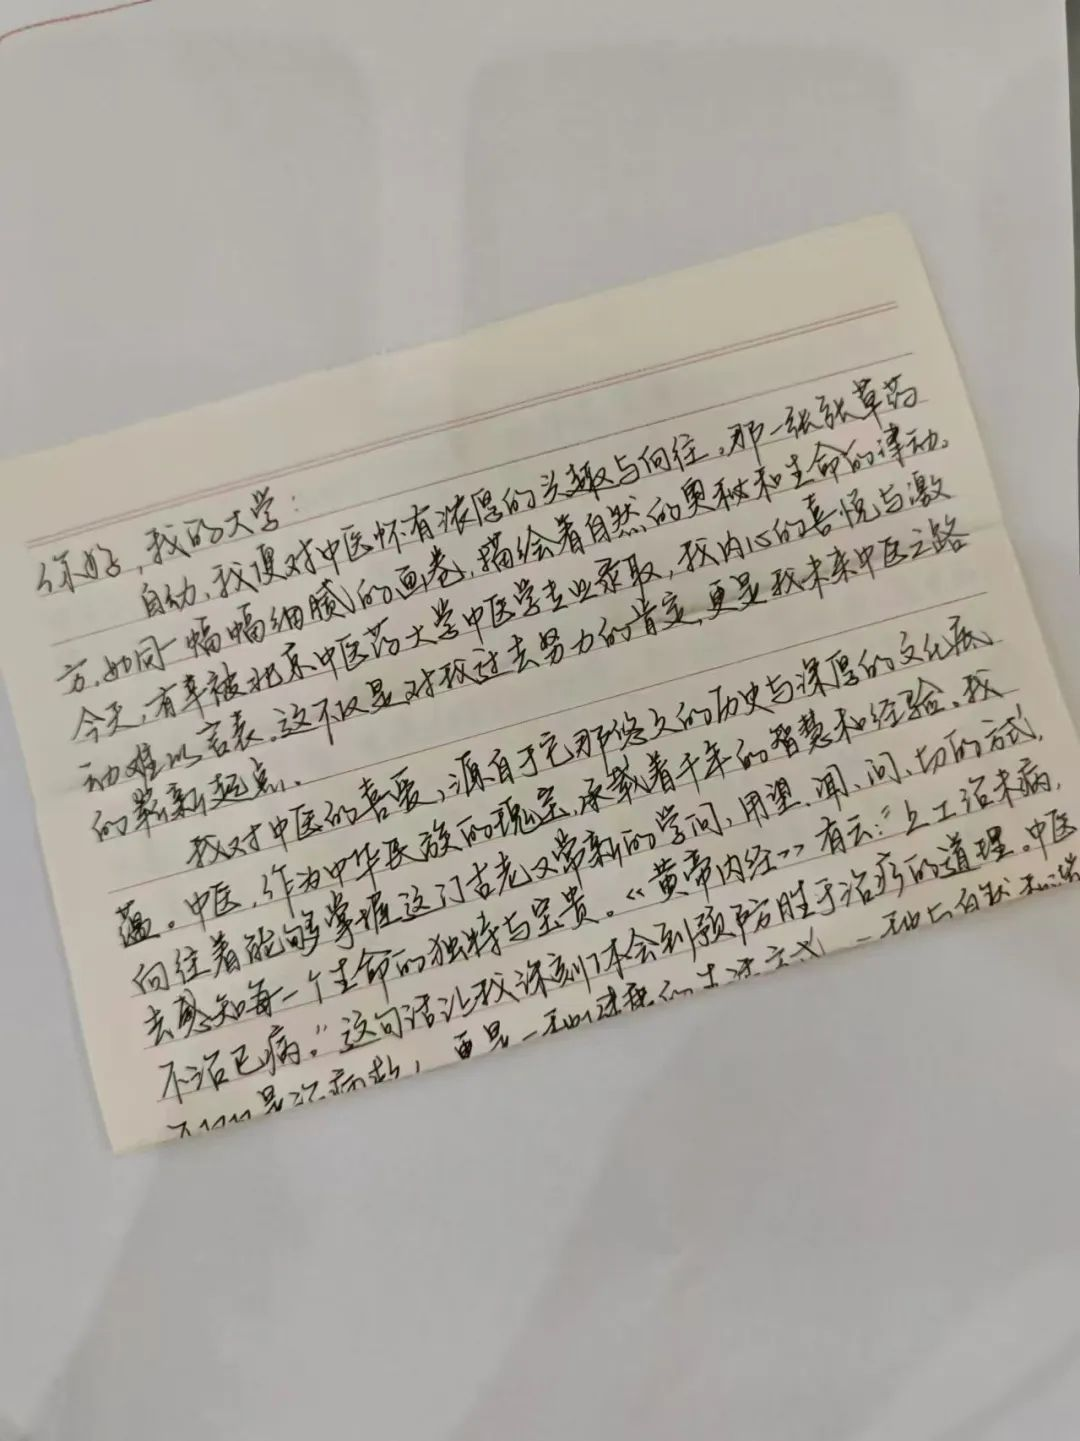 你好，我的大学：
自幼，我便对中医怀有浓厚的兴趣与向往。那一张张草药
方，如同一幅幅细腻的画卷，描绘着自然的奥秘和生命的律动。
今天，有幸被北京中医药大学中医学专业录取，我内心的喜悦与激
动难以言表。这不仅是对我过去努力的肯定，更是我未来中医之路
的崭新起点。
我对中医的喜爱，源自于它那悠久的历史与深厚的文化底
蕴。中医，作为中华民族的瑰宝，承载着千年的智慧和经验。我
向往着能够掌握这门古老又常新的学问，用望、闻、问、切的方式，
去感知每一个生命的独特与宝贵。《黄帝内经》有云：“上工治未病，
不治已病。”这句话让我深刻体会到预防胜于治疗的道理。中医
不仅仅是治病救，更是一种健康的生活方式，一种与自然和谐